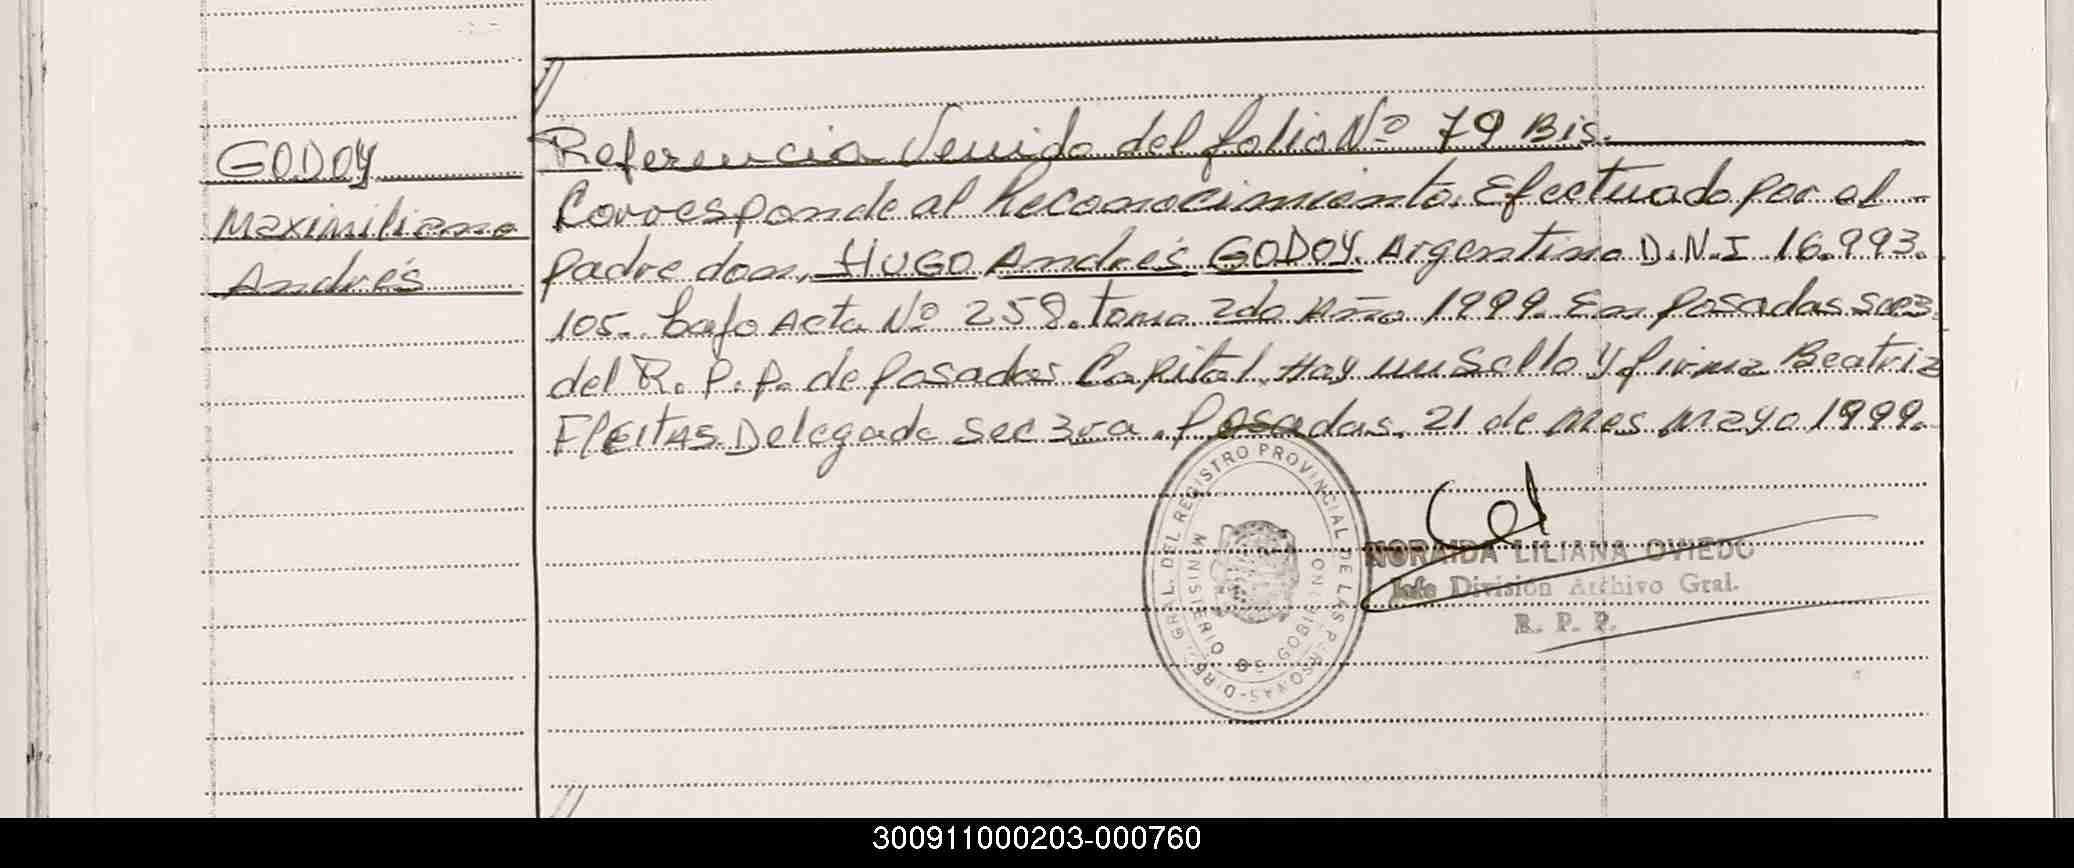 GODOY
Maximiliano
Andrés
Referencia Venida del folio Nº 79 Bis.
Corresponde al Reconocimiento. Efectuado por el
padre don, HUGO Andrés GODOY. Argentino D.N.I 16.993.
105. bajo Acta Nº 258. tomo 2do Año 1999. En Posadas Sec3
del R.P.P. de Posadas Capital. Hay un Sello y firma Beatriz
FLEITAS. Delegada Sec 3ra. Posadas. 21 de mes Mayo 1999.
DIREC. GRAL. DEL REGISTRO PROVINCIAL DE LAS PERSONAS
MINISTERIO DE GOBIERNO
NORAIDA LILIANA OVIEDO
Jefe División Archivo Gral.
R. P. P.
300911000203-000760